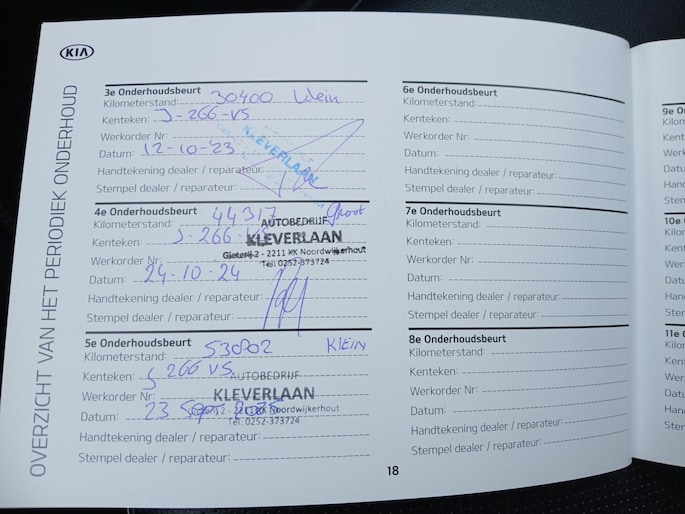 KIA
OVERZICHT VAN HET PERIODIEK ONDERHOUD
3e Onderhoudsbeurt
Kilometerstand: 30400 klein
Kenteken: J-266-VS
Werkorder Nr:
KLEVERLAAN
Datum: 12-10-23
Handtekening dealer / reparateur:
Stempel dealer / reparateur:
4e Onderhoudsbeurt
Kilometerstand: 44317 Groot
AUTOBEDRIJF
Kenteken: J-266-VS
KLEVERLAAN
Werkorder Nr:
Gieterij 2 - 2211 KK Noordwijkerhout
Tel: 0252-373724
Datum: 24-10-24
Handtekening dealer / reparateur:
Stempel dealer / reparateur:
5e Onderhoudsbeurt
Kilometerstand: 53002 KLEIN
Kenteken: J 266 VS
AUTOBEDRIJF
Werkorder Nr:
KLEVERLAAN
2211 KK Noordwijkerhout
Datum: 23 Sept 2025
Tel: 0252-373724
Handtekening dealer / reparateur:
Stempel dealer / reparateur:
6e Onderhoudsbeurt
Kilometerstand:
Kenteken:
Werkorder Nr:
Datum:
Handtekening dealer / reparateur:
Stempel dealer / reparateur:
7e Onderhoudsbeurt
Kilometerstand:
Kenteken:
Werkorder Nr:
Datum:
Handtekening dealer / reparateur:
Stempel dealer / reparateur:
8e Onderhoudsbeurt
Kilometerstand:
Kenteken:
Werkorder Nr:
Datum:
Handtekening dealer / reparateur:
Stempel dealer / reparateur:
18
9e O
Kilon
Kent
Werk
Datu
Hand
Sten
10e
Kilo
Ken
Wer
Datu
Han
Ste
11e
Kilo
Ken
We
Dat
Ha
Ste